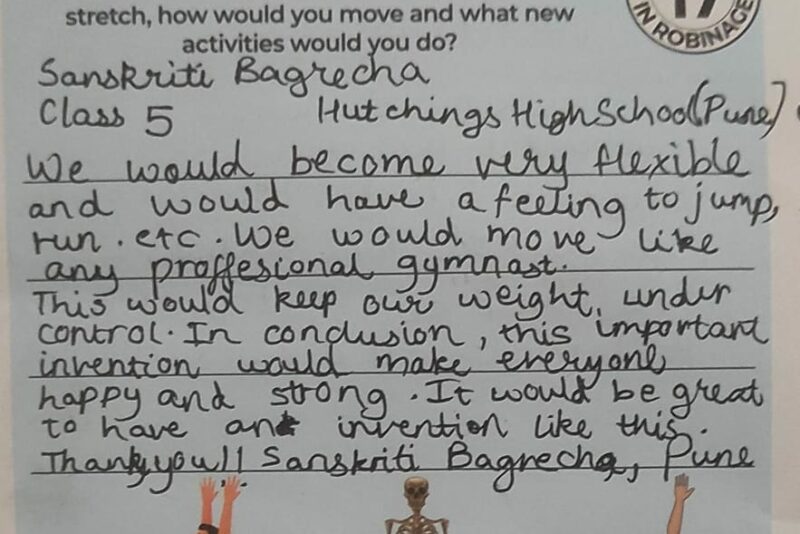 stretch, how would you move and what new
activities would you do?
17
IN ROBINAGE
Sanskriti Bagrecha
Class 5 Hutchings High School (Pune)
We would become very flexible
and would have a feeling to jump,
run. etc. We would move like
any proffesional gymnast.
This would keep our weight, under
control. In conclusion, this important
invention would make everyone
happy and strong. It would be great
to have an invention like this.
Thankyou!! Sanskriti Bagrecha, Pune